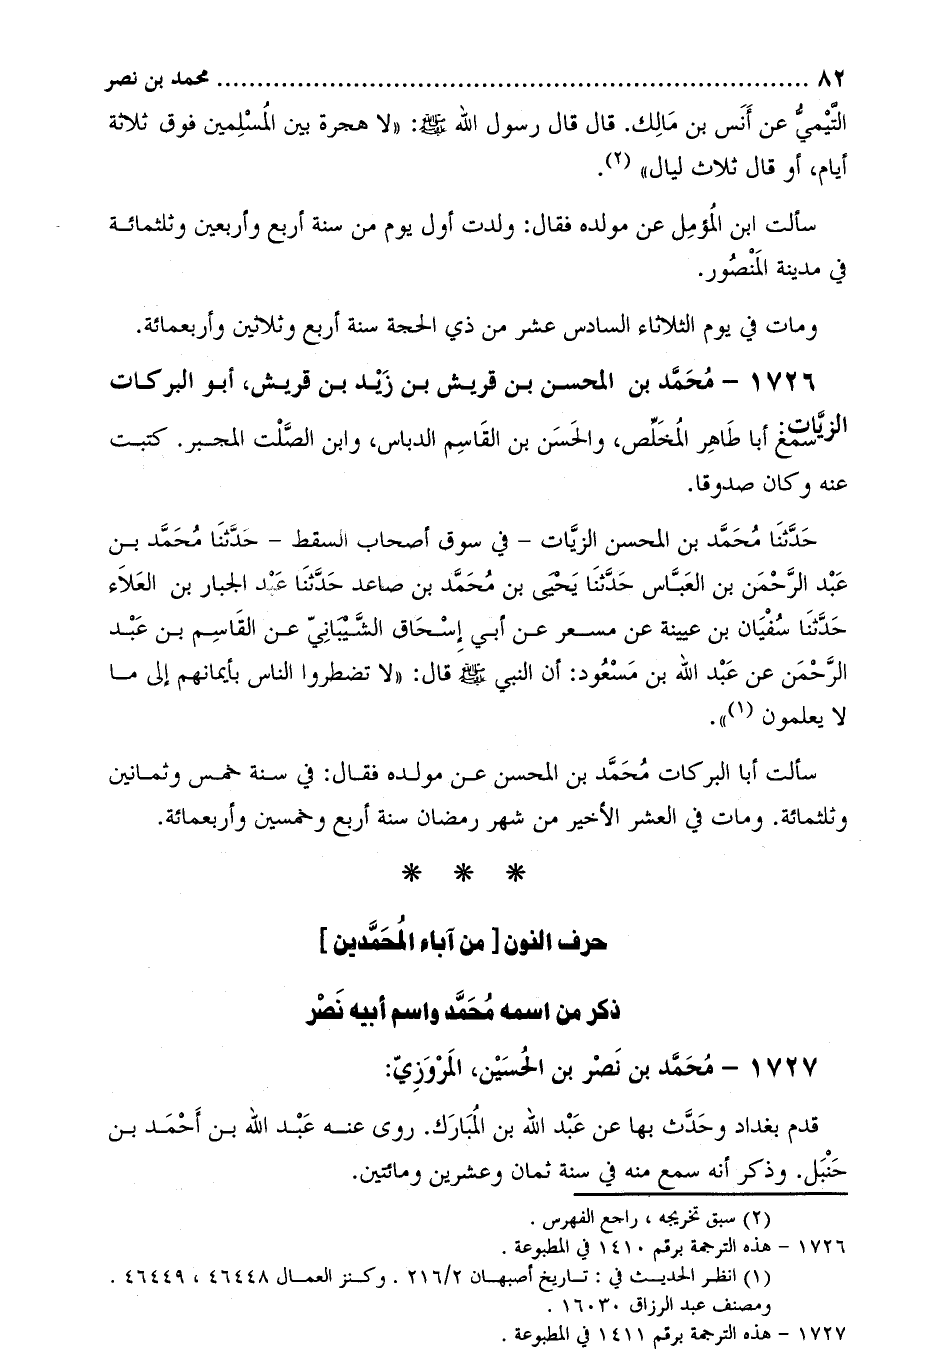 ٨٢ ........................................................................... محمد بن نصر
التَّيْميُّ عن أَنَس بن مَالِك. قال قال رسول الله ﷺ: «لا هجرة بين المُسْلِمين فوق ثلاثة
أيام، أو قال ثلاث ليال» (٢).
سألت ابن المُؤمِل عن مولده فقال: ولدت أول يوم من سنة أربع وأربعين وثلثمائة
في مدينة المَنْصُور.
ومات في يوم الثلاثاء السادس عشر من ذي الحجة سنة أربع وثلاثين وأربعمائة.
١٧٢٦ – مُحَمَّد بن المحسن بن قريش بن زَيْد بن قريش، أبو البركات
الزيَّات:
سمع أبا طَاهِر المُخلِّص، والحَسَن بن القَاسِم الدباس، وابن الصَّلْت المجبر. كتبت
عنه وكان صدوقا.
حَدَّثَنَا مُحَمَّد بن المحسن الزيَّات – في سوق أصحاب السقط – حَدَّثَنَا مُحَمَّد بن
عَبْد الرَّحْمَن بن العَبَّاس حَدَّثَنَا يَحْيَى بن مُحَمَّد بن صاعد حَدَّثَنَا عَبْد الجبار بن العَلاَء
حَدَّثَنَا سُفْيَان بن عيينة عن مسعر عن أبي إِسْحَاق الشَّيْبَانِيّ عن القَاسِم بن عَبْد
الرَّحْمَن عن عَبْد الله بن مَسْعُود: أن النبي ﷺ قال: «لا تضطروا الناس بأيمانهم إلى ما
لا يعلمون (١)».
سألت أبا البركات مُحَمَّد بن المحسن عن مولده فقال: في سنة خمس وثمانين
وثلثمائة. ومات في العشر الأخير من شهر رمضان سنة أربع وخمسين وأربعمائة.
* * *
حرف النون [ من آباء المُحَمَّدين ]
ذكر من اسمه مُحَمَّد واسم أبيه نَصْر
١٧٢٧ – مُحَمَّد بن نَصْر بن الحُسَيْن، المَرْوَزِيّ:
قدم بغداد وحَدَّث بها عن عَبْد الله بن المُبَارَك. روى عنه عَبْد الله بن أَحْمَد بن
حَنْبَل. وذكر أنه سمع منه في سنة ثمان وعشرين ومائتين.
(٢) سبق تخريجه ، راجع الفهرس .
١٧٢٦ – هذه الترجمة برقم ١٤١٠ في المطبوعة .
(١) انظر الحديث في : تاريخ أصبهان ٢١٦/٢ . وكنز العمال ٤٦٤٤٨ ، ٤٦٤٤٩ .
ومصنف عبد الرزاق ١٦٠٣٠ .
١٧٢٧ – هذه الترجمة برقم ١٤١١ في المطبوعة .